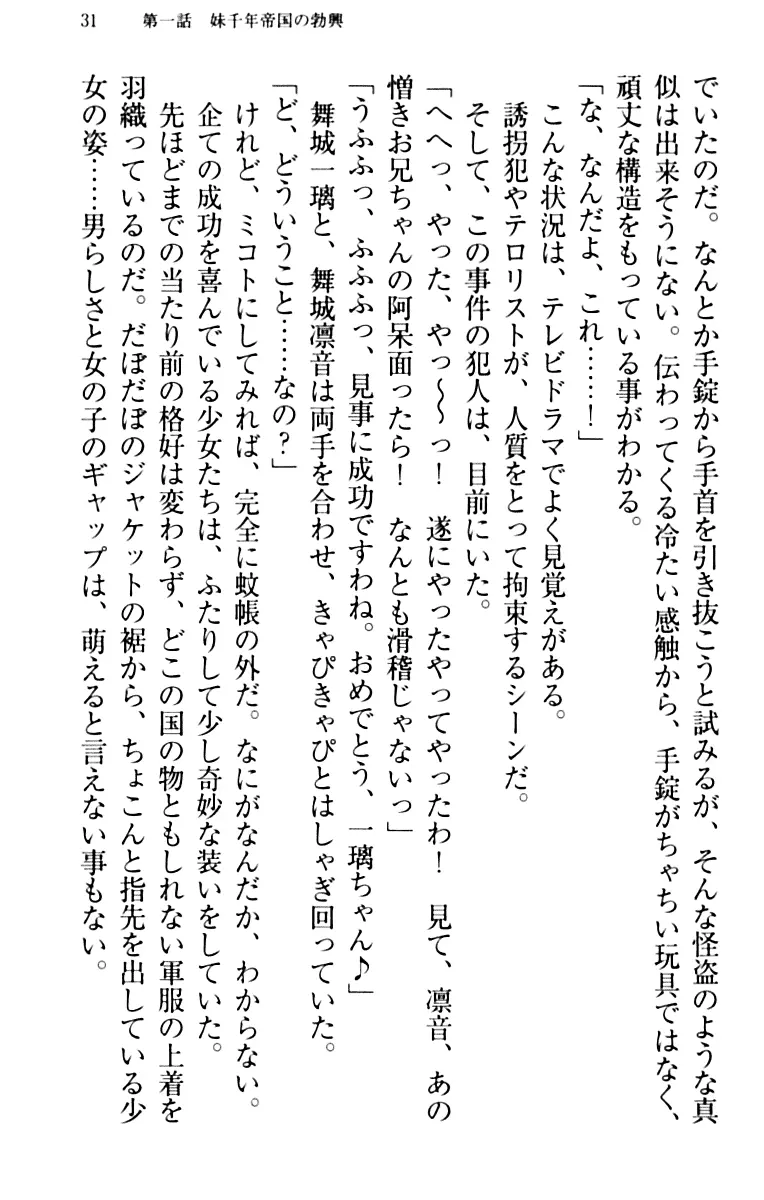 31　第一話　妹千年帝国の勃興
でいたのだ。なんとか手錠から手首を引き抜こうと試みるが、そんな怪盗のような真
似は出来そうにない。伝わってくる冷たい感触から、手錠がちゃちい玩具ではなく、
頑丈な構造をもっている事がわかる。
「な、なんだよ、これ……！」
こんな状況は、テレビドラマでよく見覚えがある。
誘拐犯やテロリストが、人質をとって拘束するシーンだ。
そして、この事件の犯人は、目前にいた。
「へへっ、やった、やっ〜〜っ！　遂にやったやってやったわ！　見て、凛音、あの
憎きお兄ちゃんの阿呆面ったら！　なんとも滑稽じゃないっ」
「うふふっ、ふふふっ、見事に成功ですわね。おめでとう、一璃ちゃん♪」
舞城一璃と、舞城凛音は両手を合わせ、きゃぴきゃぴとはしゃぎ回っていた。
「ど、どういうこと……なの？」
けれど、ミコトにしてみれば、完全に蚊帳の外だ。なにがなんだか、わからない。
企ての成功を喜んでいる少女たちは、ふたりして少し奇妙な装いをしていた。
先ほどまでの当たり前の格好は変わらず、どこの国の物ともしれない軍服の上着を
羽織っているのだ。だぼだぼのジャケットの裾から、ちょこんと指先を出している少
女の姿……男らしさと女の子のギャップは、萌えると言えない事もない。